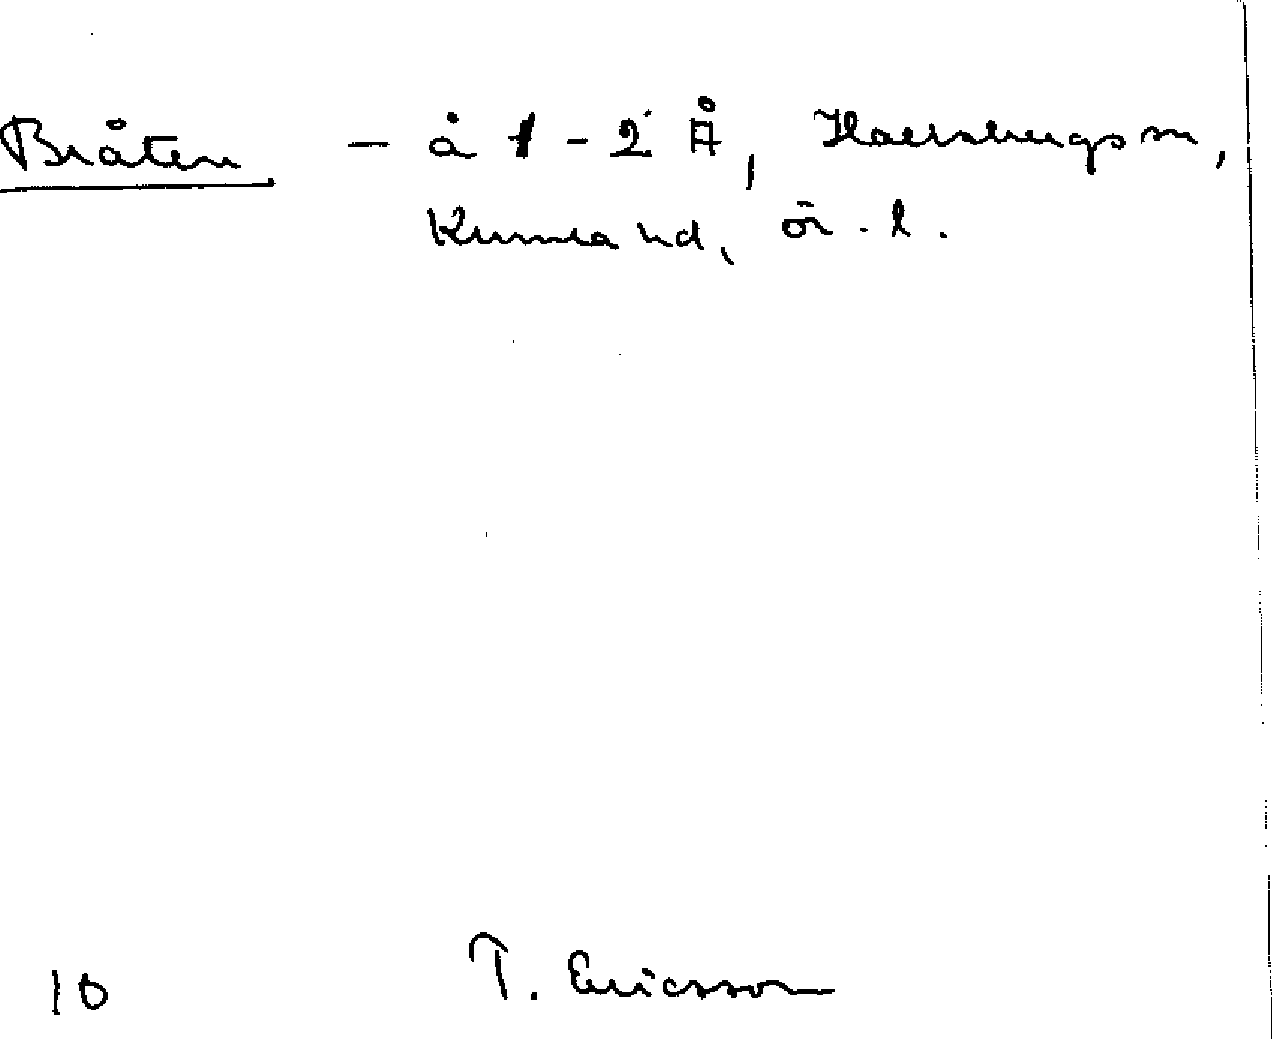 Bråten – å 1 - 2 Å, Hallsbergs sn,
Kumla hd, ör. l.
10 T. Ericsson